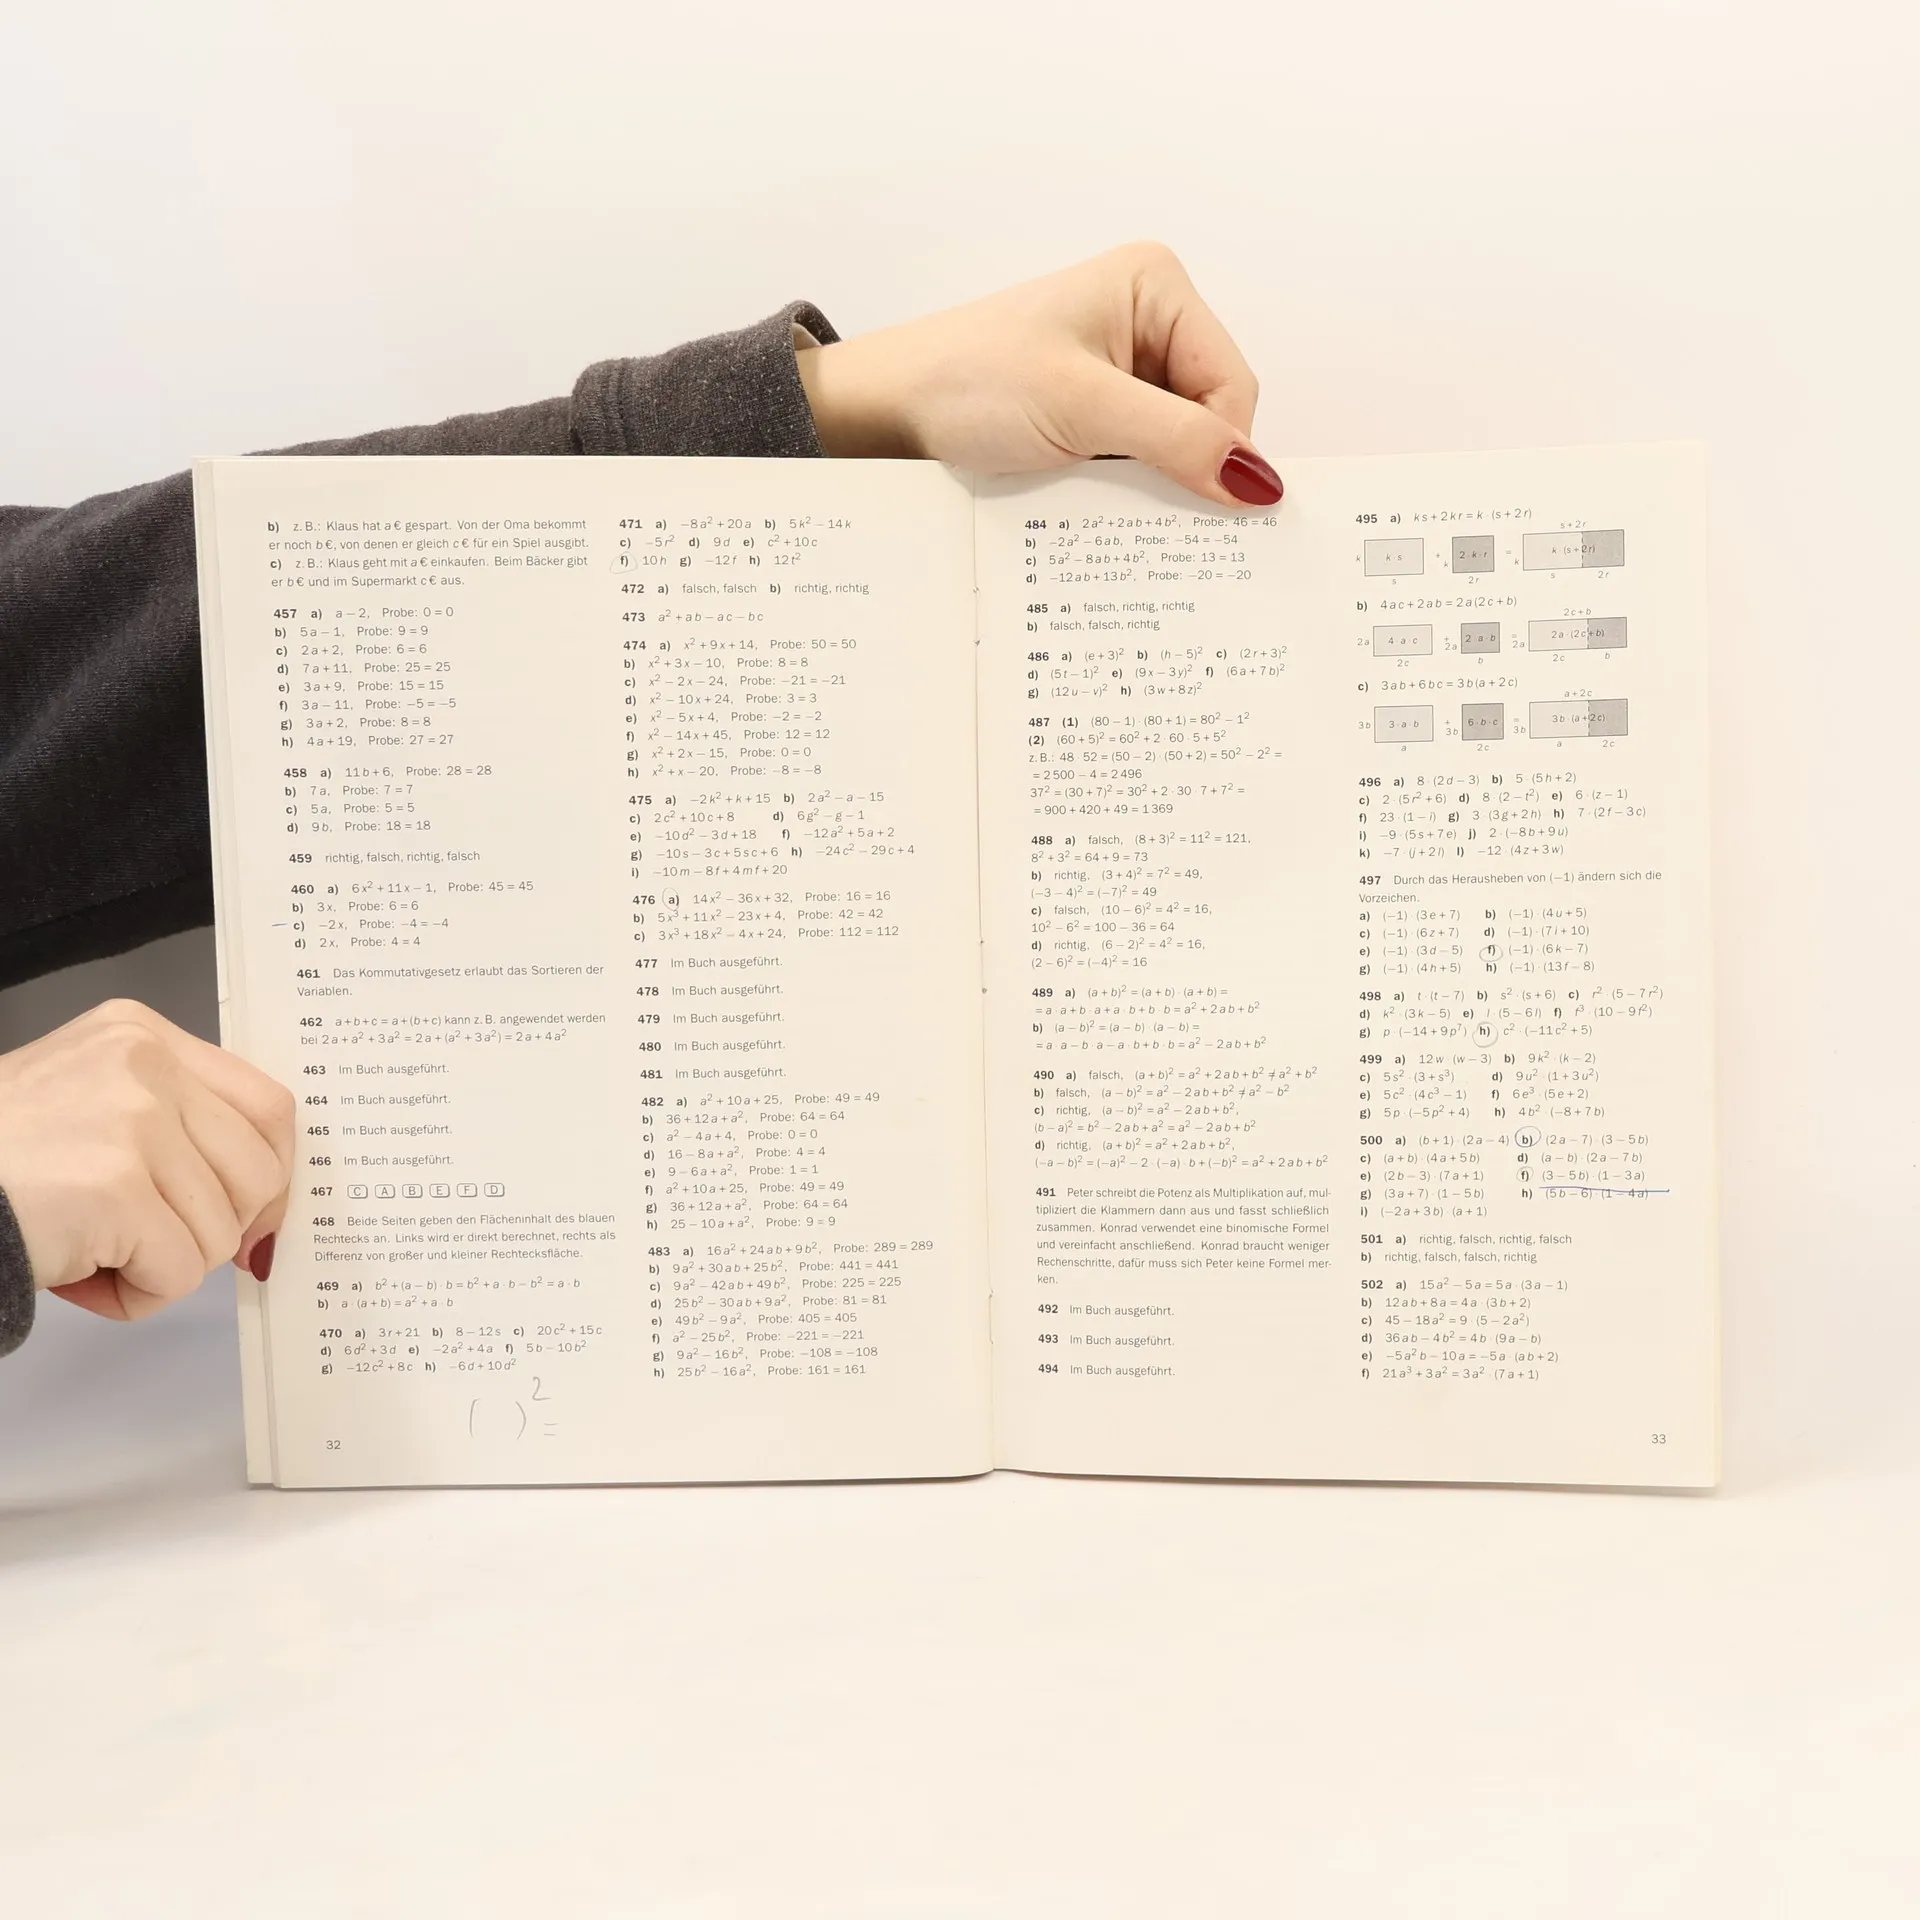 b) z. B.: Klaus hat a € gespart. Von der Oma bekommt
er noch b €, von denen er gleich c € für ein Spiel ausgibt.
c) z. B.: Klaus geht mit a € einkaufen. Beim Bäcker gibt
er b € und im Supermarkt c € aus.
457 a) a − 2, Probe: 0 = 0
b) 5a − 1, Probe: 9 = 9
c) 2a + 2, Probe: 6 = 6
d) 7a + 11, Probe: 25 = 25
e) 3a + 9, Probe: 15 = 15
f) 3a − 11, Probe: −5 = −5
g) 3a + 2, Probe: 8 = 8
h) 4a + 19, Probe: 27 = 27
458 a) 11b + 6, Probe: 28 = 28
b) 7a, Probe: 7 = 7
c) 5a, Probe: 5 = 5
d) 9b, Probe: 18 = 18
459 richtig, falsch, richtig, falsch
460 a) 6x² + 11x − 1, Probe: 45 = 45
b) 3x, Probe: 6 = 6
c) −2x, Probe: −4 = −4
d) 2x, Probe: 4 = 4
461 Das Kommutativgesetz erlaubt das Sortieren der
Variablen.
462 a + b + c = a + (b + c) kann z. B. angewendet werden
bei 2a + a² + 3a² = 2a + (a² + 3a²) = 2a + 4a²
463 Im Buch ausgeführt.
464 Im Buch ausgeführt.
465 Im Buch ausgeführt.
466 Im Buch ausgeführt.
467 C A B E F D
468 Beide Seiten geben den Flächeninhalt des blauen
Rechtecks an. Links wird er direkt berechnet, rechts als
Differenz von großer und kleiner Rechtecksfläche.
469 a) b² + (a − b) · b = b² + a · b − b² = a · b
b) a · (a + b) = a² + a · b
470 a) 3r + 21 b) 8 − 12s c) 20c² + 15c
d) 6d² + 3d e) −2a² + 4a f) 5b − 10b²
g) −12c² + 8c h) −6d + 10d²
( )² =
32
471 a) −8a² + 20a b) 5k² − 14k
c) −5r² d) 9d e) c² + 10c
f) 10h g) −12f h) 12t²
472 a) falsch, falsch b) richtig, richtig
473 a² + ab − ac − bc
474 a) x² + 9x + 14, Probe: 50 = 50
b) x² + 3x − 10, Probe: 8 = 8
c) x² − 2x − 24, Probe: −21 = −21
d) x² − 10x + 24, Probe: 3 = 3
e) x² − 5x + 4, Probe: −2 = −2
f) x² − 14x + 45, Probe: 12 = 12
g) x² + 2x − 15, Probe: 0 = 0
h) x² + x − 20, Probe: −8 = −8
475 a) −2k² + k + 15 b) 2a² − a − 15
c) 2c² + 10c + 8 d) 6g² − g − 1
e) −10d² − 3d + 18 f) −12a² + 5a + 2
g) −10s − 3c + 5sc + 6 h) −24c² − 29c + 4
i) −10m − 8f + 4mf + 20
476 a) 14x² − 36x + 32, Probe: 16 = 16
b) 5x³ + 11x² − 23x + 4, Probe: 42 = 42
c) 3x³ + 18x² − 4x + 24, Probe: 112 = 112
477 Im Buch ausgeführt.
478 Im Buch ausgeführt.
479 Im Buch ausgeführt.
480 Im Buch ausgeführt.
481 Im Buch ausgeführt.
482 a) a² + 10a + 25, Probe: 49 = 49
b) 36 + 12a + a², Probe: 64 = 64
c) a² − 4a + 4, Probe: 0 = 0
d) 16 − 8a + a², Probe: 4 = 4
e) 9 − 6a + a², Probe: 1 = 1
f) a² + 10a + 25, Probe: 49 = 49
g) 36 + 12a + a², Probe: 64 = 64
h) 25 − 10a + a², Probe: 9 = 9
483 a) 16a² + 24ab + 9b², Probe: 289 = 289
b) 9a² + 30ab + 25b², Probe: 441 = 441
c) 9a² − 42ab + 49b², Probe: 225 = 225
d) 25b² − 30ab + 9a², Probe: 81 = 81
e) 49b² − 9a², Probe: 405 = 405
f) a² − 25b², Probe: −221 = −221
g) 9a² − 16b², Probe: −108 = −108
h) 25b² − 16a², Probe: 161 = 161
484 a) 2a² + 2ab + 4b², Probe: 46 = 46
b) −2a² − 6ab, Probe: −54 = −54
c) 5a² − 8ab + 4b², Probe: 13 = 13
d) −12ab + 13b², Probe: −20 = −20
485 a) falsch, richtig, richtig
b) falsch, falsch, richtig
486 a) (e + 3)² b) (h − 5)² c) (2r + 3)²
d) (5t − 1)² e) (9x − 3y)² f) (6a + 7b)²
g) (12u − v)² h) (3w + 8z)²
487 (1) (80 − 1) · (80 + 1) = 80² − 1²
(2) (60 + 5)² = 60² + 2 · 60 · 5 + 5²
z. B.: 48 · 52 = (50 − 2) · (50 + 2) = 50² − 2² =
= 2500 − 4 = 2496
37² = (30 + 7)² = 30² + 2 · 30 · 7 + 7² =
= 900 + 420 + 49 = 1369
488 a) falsch, (8 + 3)² = 11² = 121,
8² + 3² = 64 + 9 = 73
b) richtig, (3 + 4)² = 7² = 49,
(−3 − 4)² = (−7)² = 49
c) falsch, (10 − 6)² = 4² = 16,
10² − 6² = 100 − 36 = 64
d) richtig, (6 − 2)² = 4² = 16,
(2 − 6)² = (−4)² = 16
489 a) (a + b)² = (a + b) · (a + b) =
= a · a + b · a + a · b + b · b = a² + 2ab + b²
b) (a − b)² = (a − b) · (a − b) =
= a · a − b · a − a · b + b · b = a² − 2ab + b²
490 a) falsch, (a + b)² = a² + 2ab + b² ≠ a² + b²
b) falsch, (a − b)² = a² − 2ab + b² ≠ a² − b²
c) richtig, (a − b)² = a² − 2ab + b²,
(b − a)² = b² − 2ab + a² = a² − 2ab + b²
d) richtig, (a + b)² = a² + 2ab + b²,
(−a − b)² = (−a)² − 2 · (−a) · b + (−b)² = a² + 2ab + b²
491 Peter schreibt die Potenz als Multiplikation auf, mul-
tipliziert die Klammern dann aus und fasst schließlich
zusammen. Konrad verwendet eine binomische Formel
und vereinfacht anschließend. Konrad braucht weniger
Rechenschritte, dafür muss sich Peter keine Formel mer-
ken.
492 Im Buch ausgeführt.
493 Im Buch ausgeführt.
494 Im Buch ausgeführt.
495 a) ks + 2kr = k · (s + 2r)
s + 2r
k k · s + k 2 · k · r = k k · (s + 2r)
s 2r s 2r
b) 4ac + 2ab = 2a(2c + b)
2c + b
2a 4 · a · c + 2a 2 · a · b = 2a 2a · (2c + b)
2c b 2c b
c) 3ab + 6bc = 3b(a + 2c)
a + 2c
3b 3 · a · b + 3b 6 · b · c = 3b 3b · (a + 2c)
a 2c a 2c
496 a) 8 · (2d − 3) b) 5 · (5h + 2)
c) 2 · (5r² + 6) d) 8 · (2 − t²) e) 6 · (z − 1)
f) 23 · (1 − i) g) 3 · (3g + 2h) h) 7 · (2f − 3c)
i) −9 · (5s + 7e) j) 2 · (−8b + 9u)
k) −7 · (j + 2l) l) −12 · (4z + 3w)
497 Durch das Herausheben von (−1) ändern sich die
Vorzeichen.
a) (−1) · (3e + 7) b) (−1) · (4u + 5)
c) (−1) · (6z + 7) d) (−1) · (7i + 10)
e) (−1) · (3d − 5) f) (−1) · (6k − 7)
g) (−1) · (4h + 5) h) (−1) · (13f − 8)
498 a) t · (t − 7) b) s² · (s + 6) c) r² · (5 − 7r²)
d) k² · (3k − 5) e) l · (5 − 6l) f) f³ · (10 − 9f²)
g) p · (−14 + 9p⁷) h) c² · (−11c² + 5)
499 a) 12w · (w − 3) b) 9k² · (k − 2)
c) 5s² · (3 + s³) d) 9u² · (1 + 3u²)
e) 5c² · (4c³ − 1) f) 6e³ · (5e + 2)
g) 5p · (−5p² + 4) h) 4b² · (−8 + 7b)
500 a) (b + 1) · (2a − 4) b) (2a − 7) · (3 − 5b)
c) (a + b) · (4a + 5b) d) (a − b) · (2a − 7b)
e) (2b − 3) · (7a + 1) f) (3 − 5b) · (1 − 3a)
g) (3a + 7) · (1 − 5b) h) (5b − 6) · (1 − 4a)
i) (−2a + 3b) · (a + 1)
501 a) richtig, falsch, richtig, falsch
b) richtig, falsch, falsch, richtig
502 a) 15a² − 5a = 5a · (3a − 1)
b) 12ab + 8a = 4a · (3b + 2)
c) 45 − 18a² = 9 · (5 − 2a²)
d) 36ab − 4b² = 4b · (9a − b)
e) −5a²b − 10a = −5a · (ab + 2)
f) 21a³ + 3a² = 3a² · (7a + 1)
33